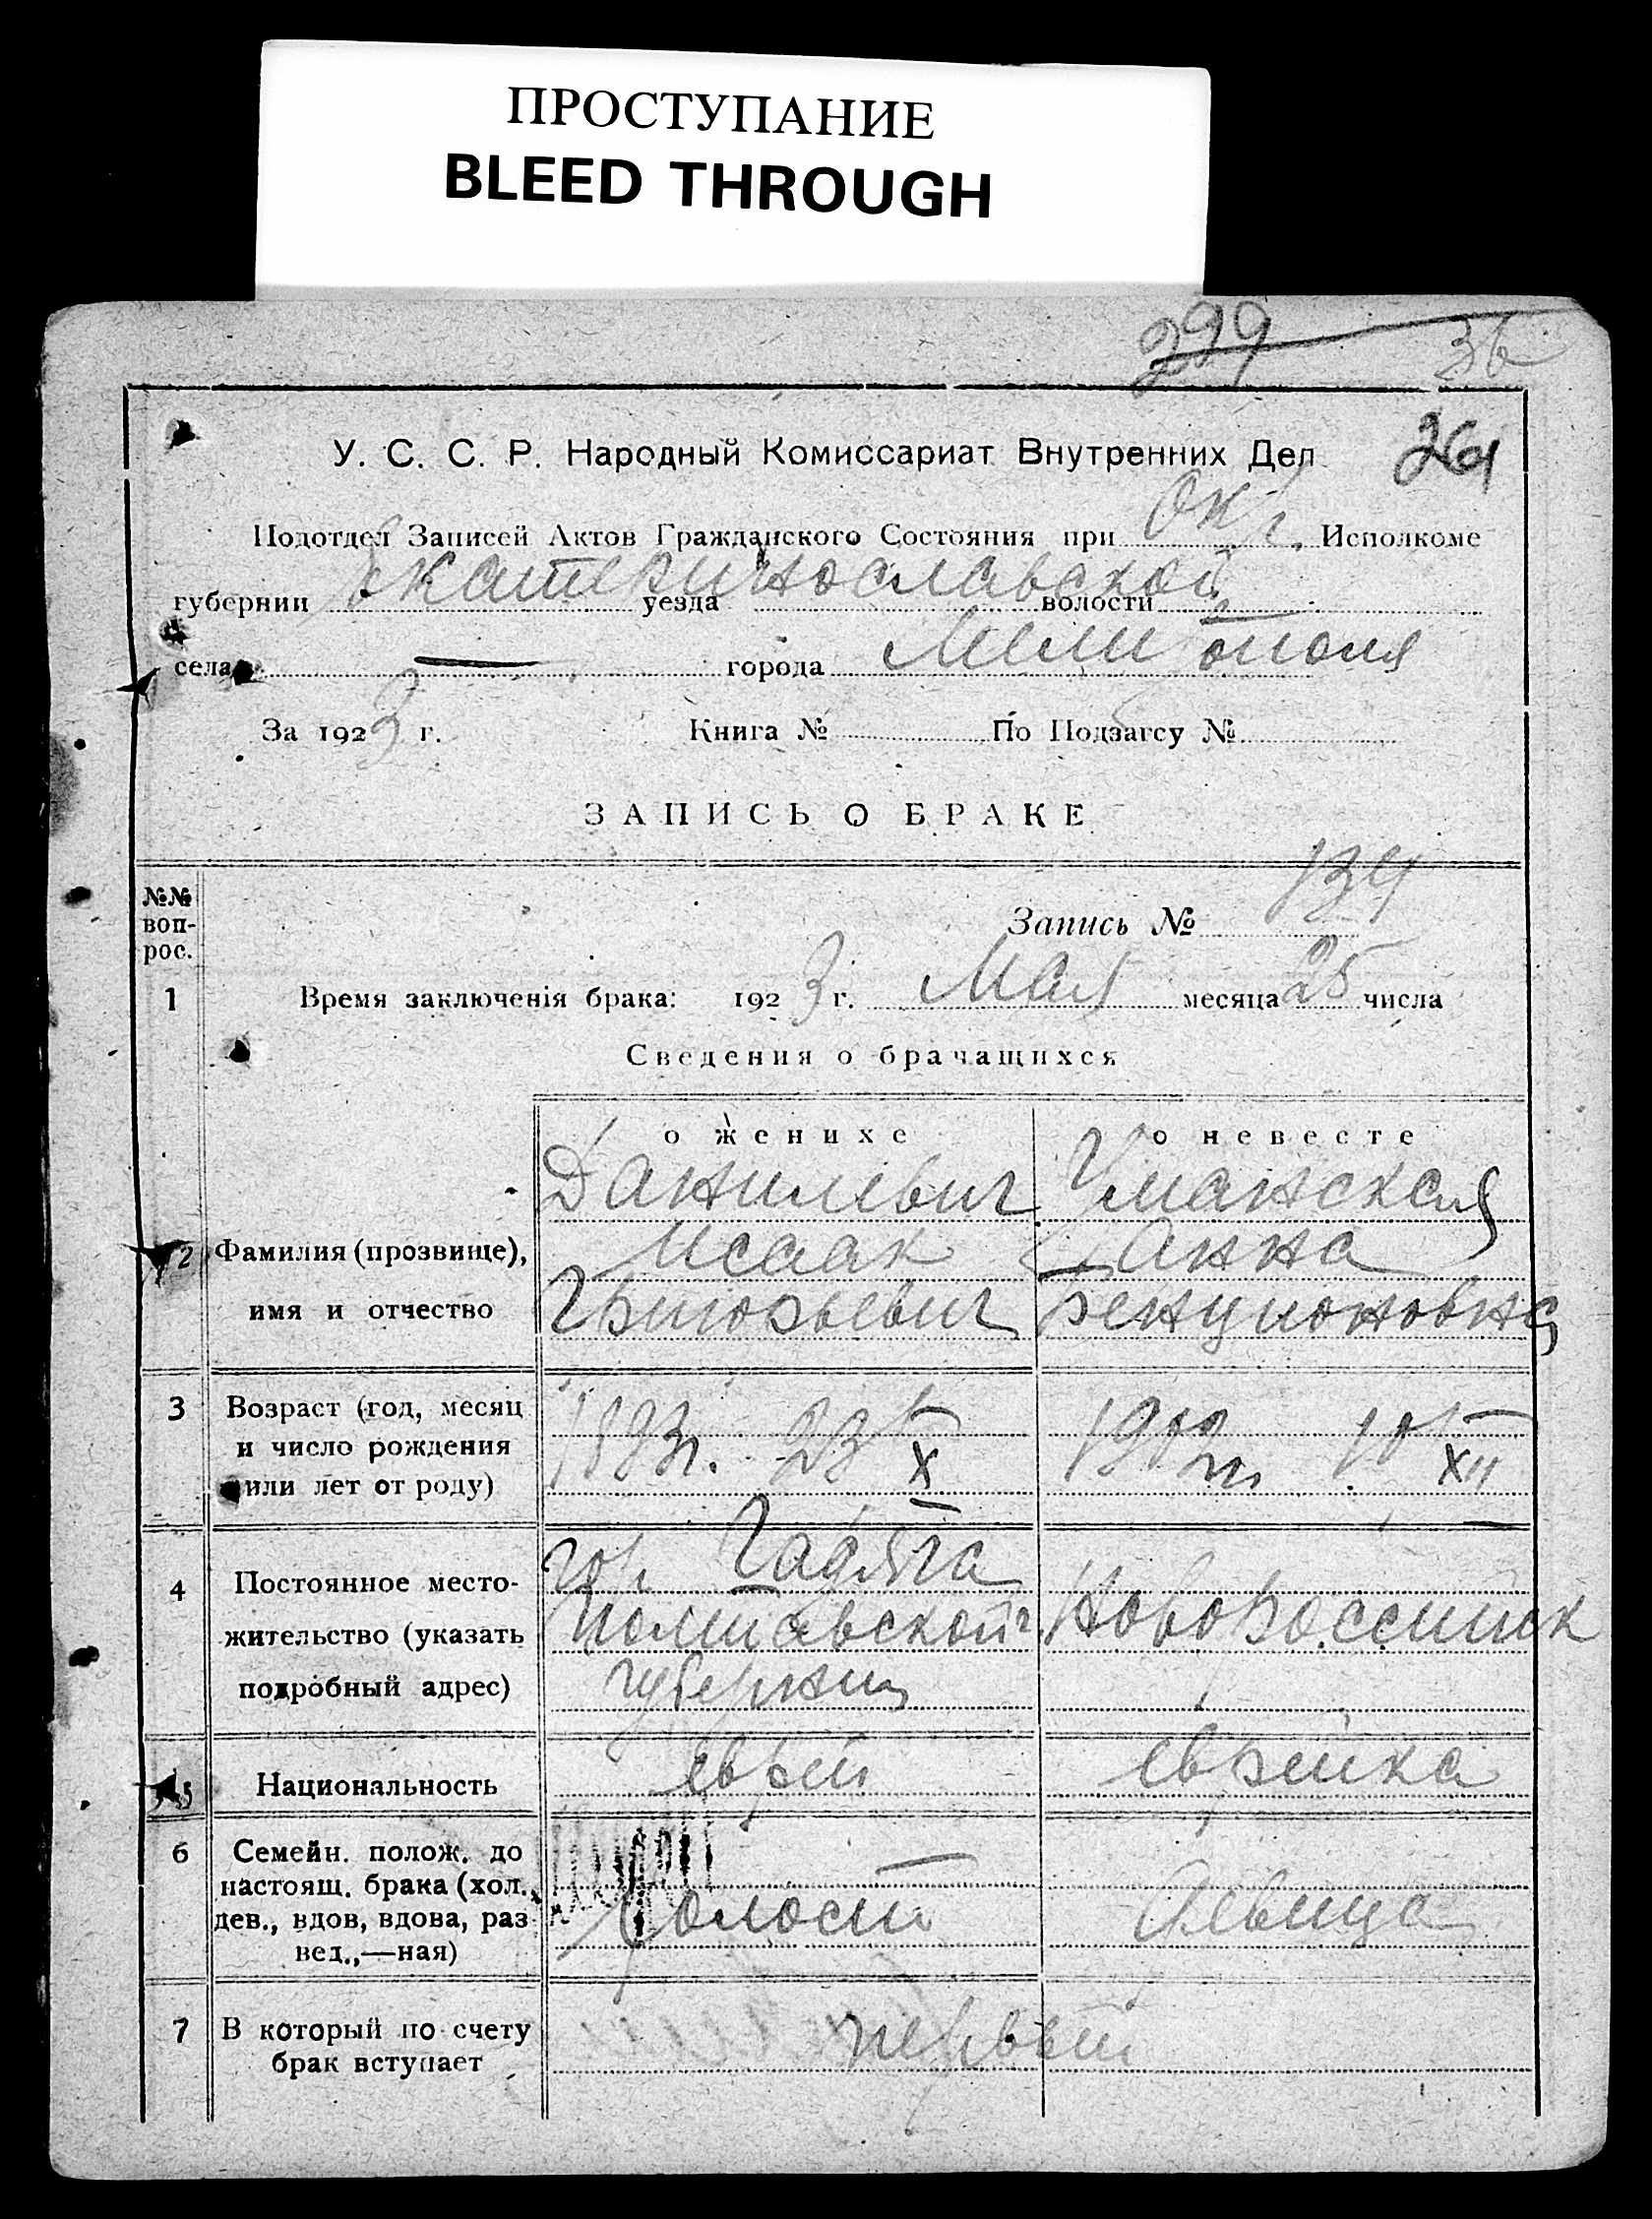 ПРОСТУПАНИЕ
BLEED THROUGH
299 36
У. С. С. Р. Народный Комиссариат Внутренних Дел 264
Подотдел Записей Актов Гражданского Состояния при Окр. Исполкоме
губернии Екатеринославской уезда волости
села — города Мелитополя
За 1923 г. Книга № По Подзагсу №
ЗАПИСЬ О БРАКЕ
№№ воп-рос.
Запись № 134
1 Время заключенія брака: 1923 г. Мая месяца 25 числа
Сведения о брачащихся
о женихе о невесте
Данилевич Уманская
2 Фамилия (прозвище), Исаак Анна
имя и отчество Григорьевич Бенционовна
3 Возраст (год, месяц
и число рождения 1893г. 23 X 1902 г. 10 XII
или лет от роду)
4 Постоянное место- гор. Гадяча
жительство (указать Полтавской Новороссийск
подробный адрес) губернии
5 Национальность еврей еврейка
6 Семейн. полож. до
настоящ. брака (хол.,
дев., вдов, вдова, раз- холост девица
вед.,—ная)
7 В который по счету первый
брак вступает